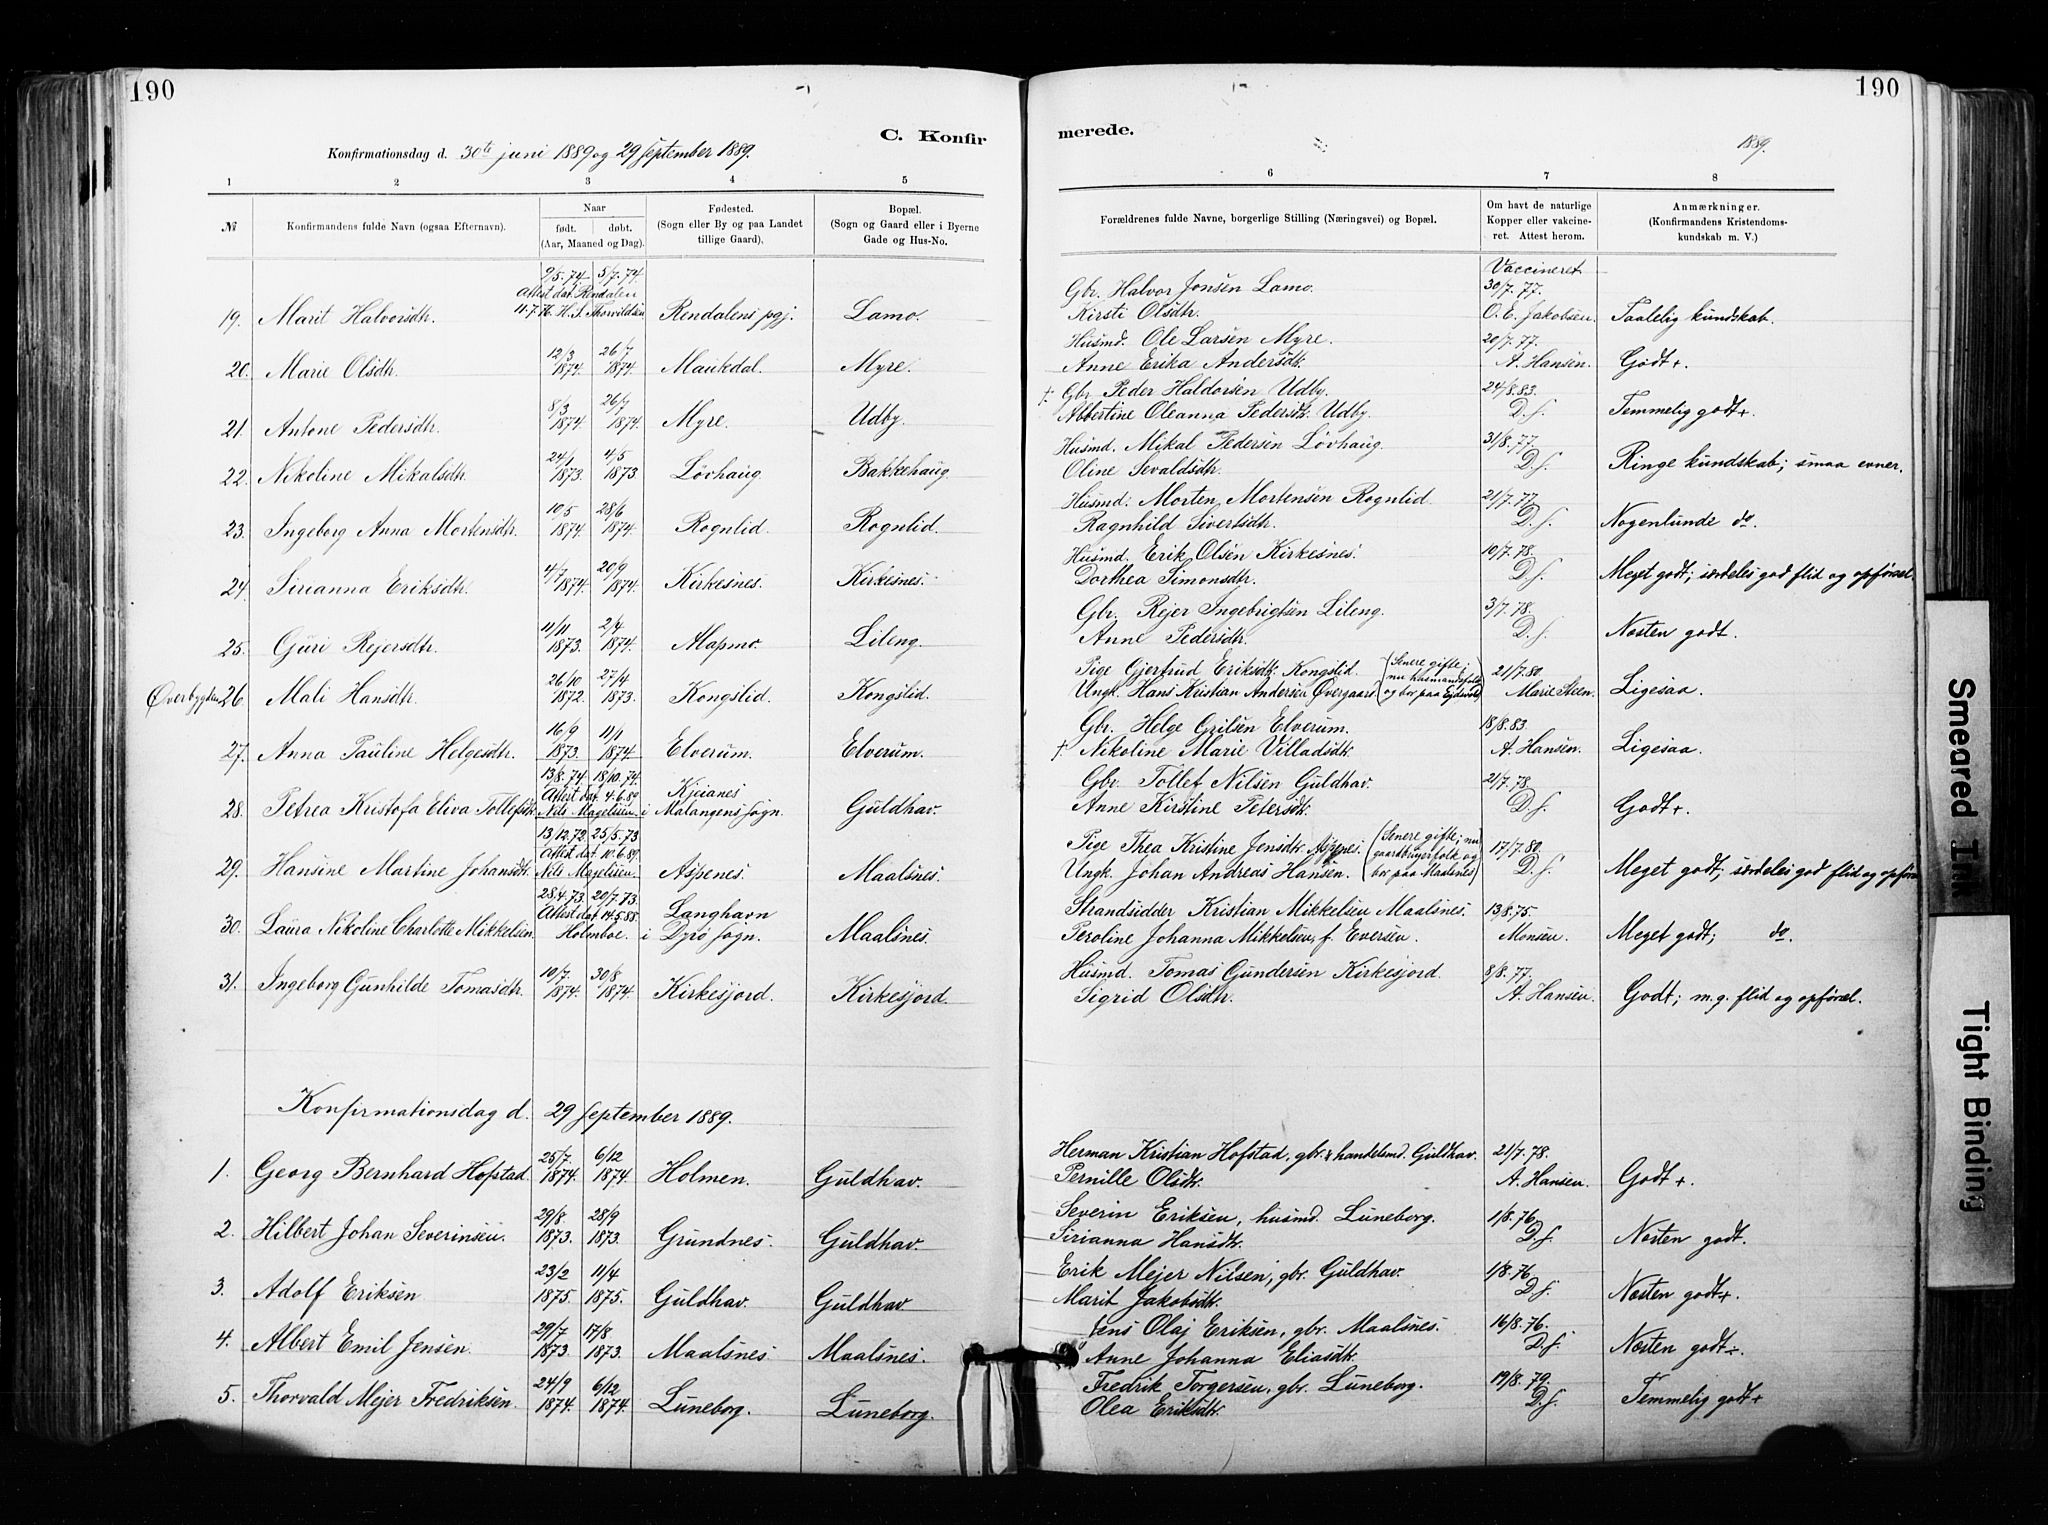 190
190
C. Konfir
merede.
Konfirmationsdag d. 30te juni 1889 og 29 september 1889.
1889.
1 2 3 4 5 6 7 8
№
Konfirmandens fulde Navn (ogsaa Efternavn).
Naar
født. døbt.
(Aar, Maaned og Dag).
Fødested.
(Sogn eller By og paa Landet
tillige Gaard).
Bopæl.
(Sogn og Gaard eller i Byerne
Gade og Hus-No.
Forældrenes fulde Navne, borgerlige Stilling (Næringsvei) og Bopæl.
Om havt de naturlige
Kopper eller vakcine-
ret. Attest herom.
Anmærkninger.
(Konfirmandens Kristendoms-
kundskab m. V.)
9/5. 74. 5/7. 74. Vaccineret
Attest dat. Rendalen Gbr. Halvor Jonsen Lamo. 30/7. 77.
19. Marit Halvorsdtr. 11.7.76. H. J. Thorvildsen Rendalens pgj. Lamo. Kirsti Olsdtr. O. E. Jakobsen. Taalelig kundskab.
12/3 26/7 Husmd. Ole Larsen Myre. 20/7. 77.
20. Marie Olsdtr. 1874. 1874. Maukdal. Myre. Anne Erika Andersdtr. A. Hansen. Godt+.
8/3 26/7 † Gbr. Peder Haldorsen Udby. 24/8. 83.
21. Antone Pedersdtr. 1874. 1874. Myre. Udby. Abbertine Oleanna Pedersdtr. Udby. D. s. Temmelig godt+.
24/1 4/5 Husmd. Mikal Pedersen Lövhaug. 31/8. 77.
22. Nikoline Mikalsdtr. 1873. 1873. Lövhaug. Bakkehaug. Oline Sevaldsdtr. D. s. Ringe kundskab; smaa evner.
10/5 28/6 Husmd. Morten Mortensen Rognlid. 21/7. 77.
23. Ingeborg Anna Mortensdtr. 1874. 1874. Rognlid. Rognlid. Ragnhild Sivertsdtr. D. s. Nogenlunde do.
4/7 20/9 Husmd. Erik Olsen Kirkesnes. 10/7. 78.
24. Sirianna Eriksdtr. 1874. 1874. Kirkesnes. Kirkesnes. Dorthea Simonsdtr. D. s. Meget godt; særdeles god flid og opførsel.
11/11 2/4 Gbr. Rejer Ingebrigtsen Lileng. 3/7. 78.
25. Guri Rejersdtr. 1873. 1874. Mapmo. Lileng. Anne Pedersdtr. D. s. Næsten godt.
26/10 27/4 Pige Gjertrud Eriksdtr. Kongslid. (Senere gifte; nu husmandsfolk 21/7. 80.
Øverbygden 26. Mali Hansdtr. 1872. 1873. Kongslid. Kongslid. Ungk. Hans Kristian Andersen Øvergaard og bor paa Ejdsvold) Marie Steen. Ligesaa.
16/9 11/1 Gbr. Helge Grilsen Elverum. 18/8. 83.
27. Anna Pauline Helgesdtr. 1873. 1874. Elverum. Elverum. † Nikoline Marie Villadsdtr. A. Hansen. Ligesaa.
13/8. 74. 18/10. 74. Gbr. Tollef Nilsen Guldhav. 21/7. 78.
Attest dat. 4.6.89 Kjeianes
28. Petrea Kristofa Eliva Tollefsdtr. Nils Magelssen i Malangens sogn. Guldhav. Anne Kirstine Petersdtr. D. s. Godt+.
13/12. 72. 25/5. 73. Pige Thea Kristine Jensdtr. Aspenes. (Senere gifte; nu 17/7. 80.
Attest dat. 10.6.89. gaardbrugerfolk og
29. Hansine Martine Johansdtr. Nils Magelssen. Aspenes. Maalsnes. Ungk. Johan Andreas Hansen. bor paa Maalsnes) D. s. Meget godt; særdeles god flid og opførs
28/4. 73. 20/7. 73. Strandsidder Kristian Mikkelsen Maalsnes. 13/8. 75.
Attest dat. 14.5.88. Langhavn
30. Laura Nikoline Charlotte Mikkelsen. Holmboe. i Dyrø sogn. Maalsnes. Peroline Johanna Mikkelsen, f. Eversen. Monsen. Meget godt; do.
10/7. 30/8 Husmd. Tomas Gundersen Kirkesjord. 8/8. 77.
31. Ingeborg Gunhilde Tomasdtr. 1874. 1874. Kirkesjord. Kirkesjord. Sigrid Olsdtr. A. Hansen. Godt; m. g. flid og opførsel.
Konfirmationsdag d. 29 september 1889.
25/7. 6/12 Herman Kristian Hofstad, gbr. & handelsmd. Guldhav. 21/7. 78.
1. Georg Bernhard Hofstad. 1874. 1874. Holmen. Guldhav. Pernille Olsdtr. A. Hansen. Godt+.
29/8. 28/9 Severin Eriksen, husmd. Luneborg. 1/8. 76.
2. Hilbert Johan Severinsen. 1873. 1873. Grundnes. Guldhav. Sirianna Hansdtr. D. s. Næsten godt.
23/2 11/4 Erik Mejer Nilsen, gbr. Guldhav. 1/8. 76.
3. Adolf Eriksen 1875. 1875. Guldhav. Guldhav Marit Jakobsdtr. D. s. Næsten godt+.
29/7 17/8 Jens Olaj Eriksen, gbr. Maalsnes. 16/8. 76.
4. Albert Emil Jensen. 1873. 1873. Maalsnes. Maalsnes. Anne Johanna Eliasdtr. D. s. Næsten godt÷.
24/9 6/12 Fredrik Torgersen, gbr. Luneborg. 19/8. 79.
5. Thorvald Mejer Fredriksen. 1874. 1874. Luneborg. Luneborg. Olea Eriksdtr. D. s. Temmelig godt+
Smeared Ink
Tight Binding